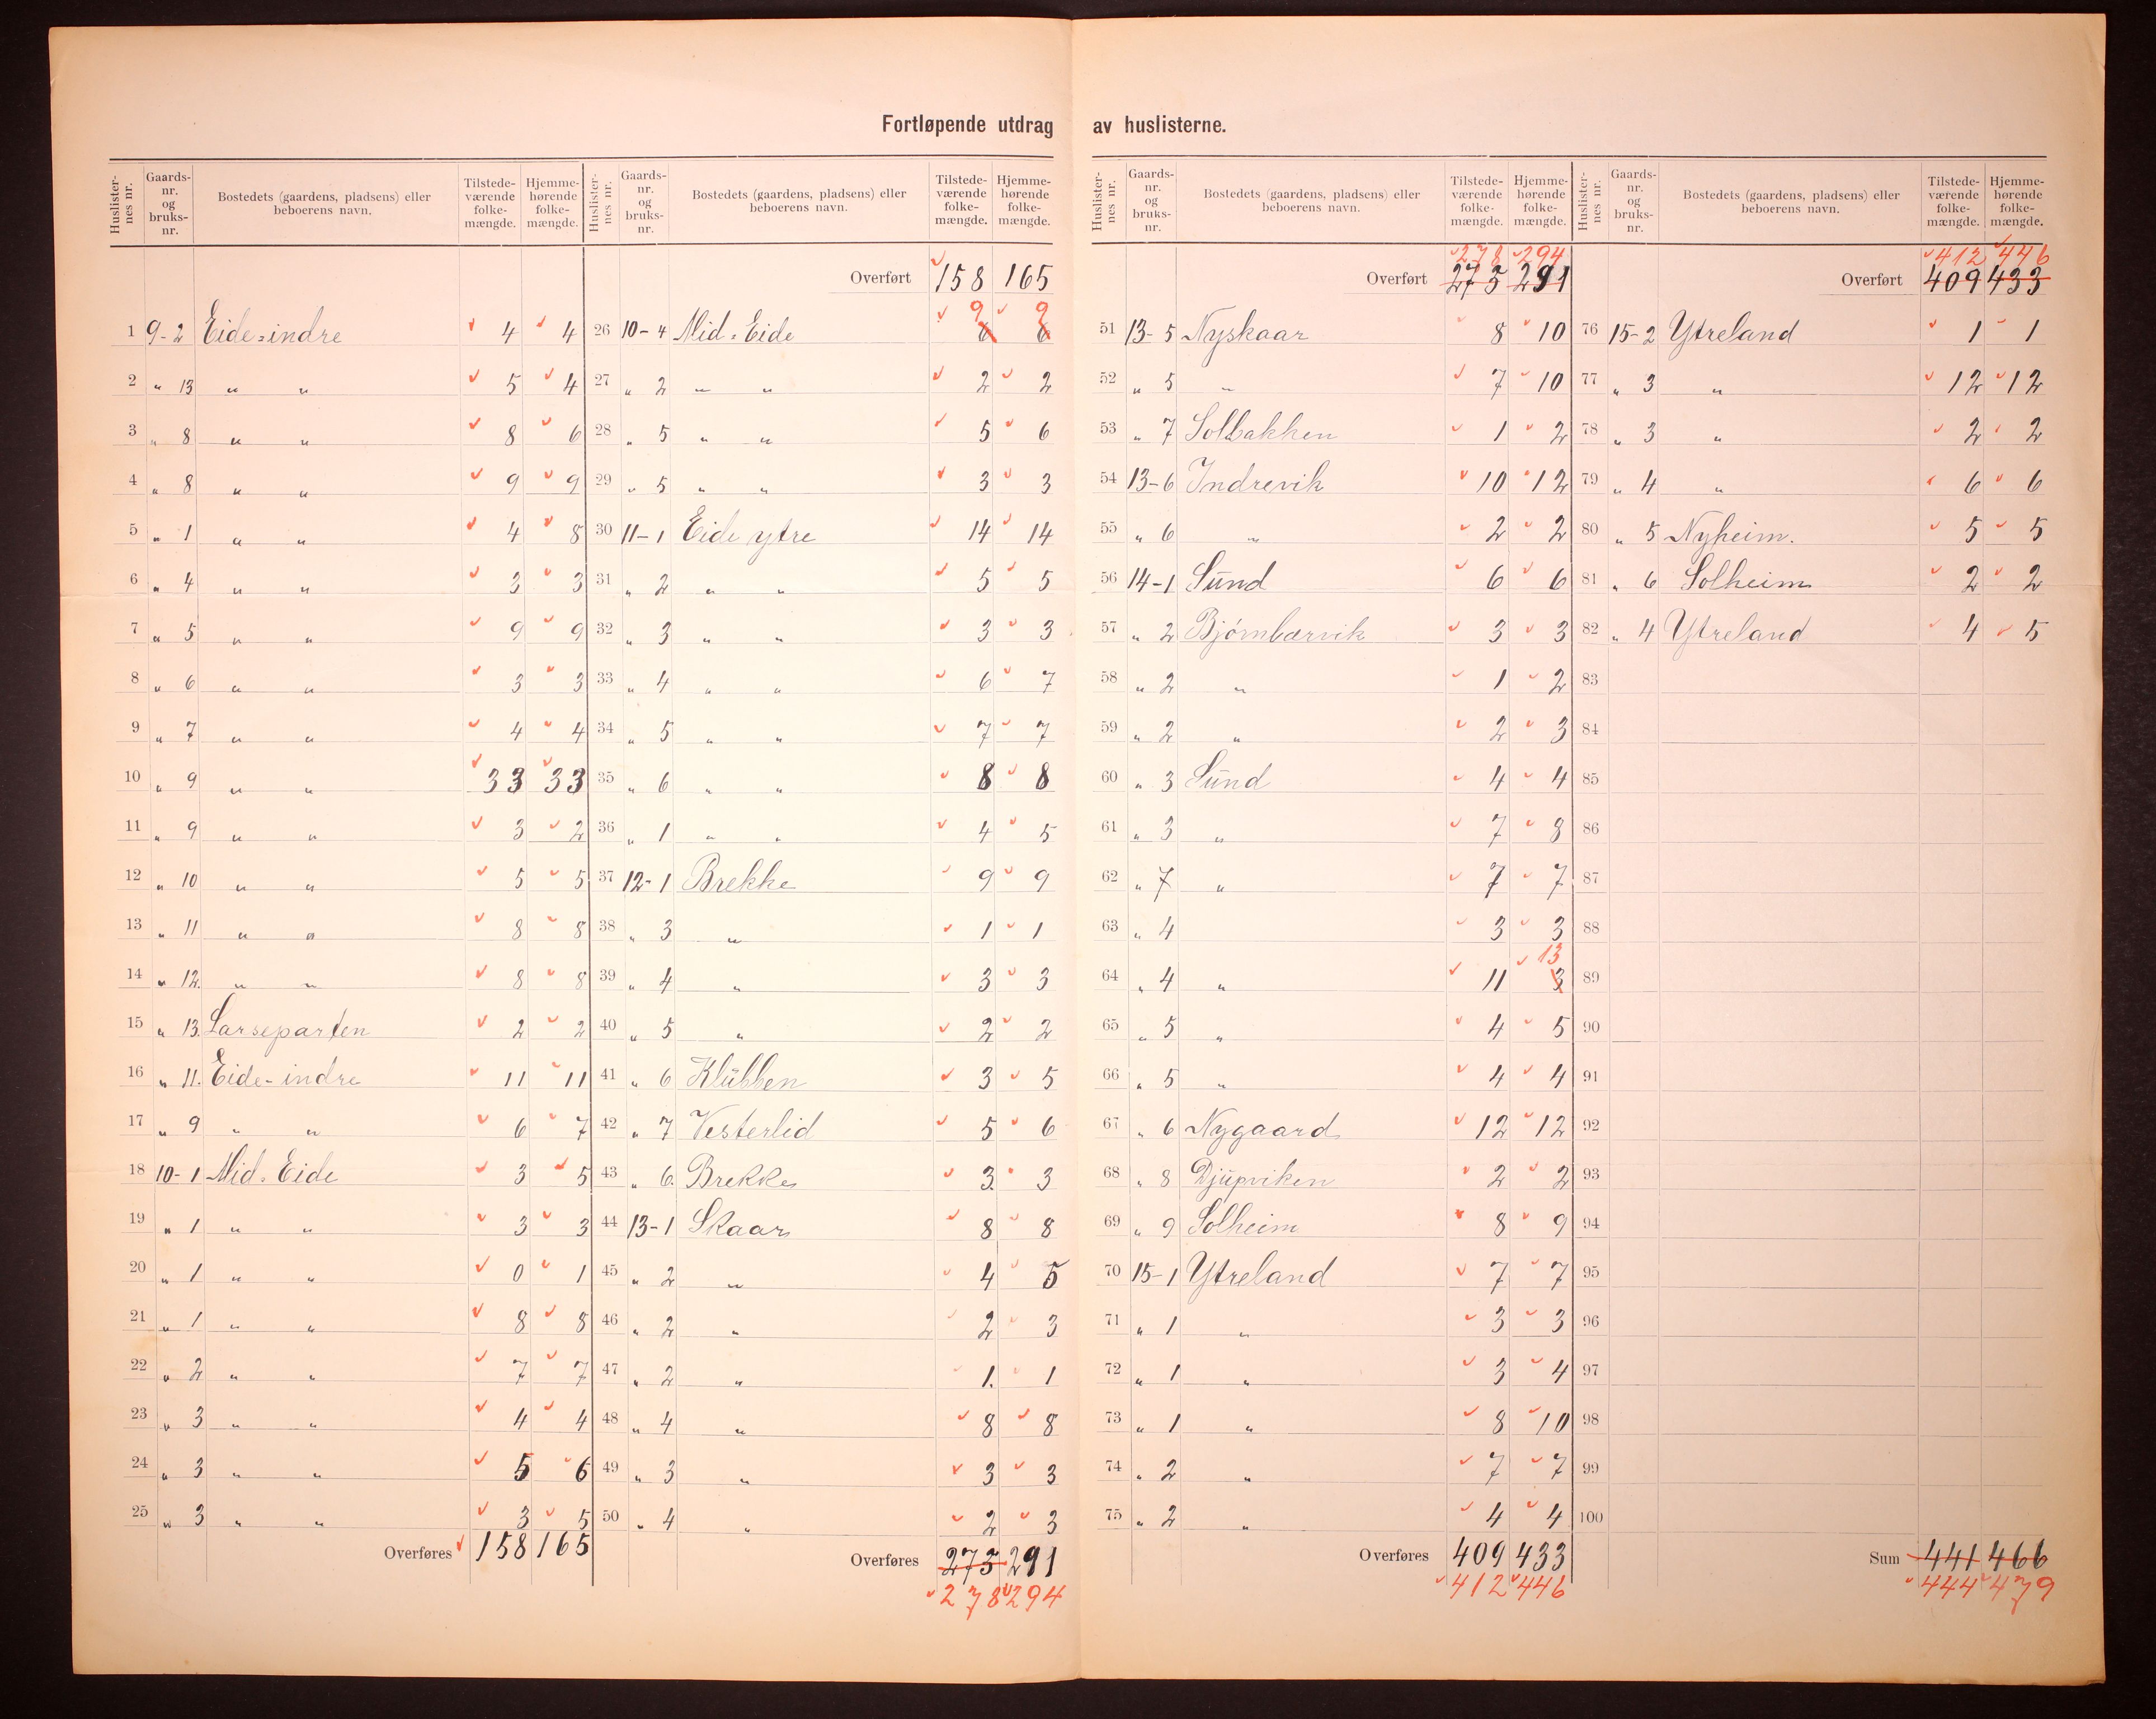 Fortløpende utdrag av huslisterne.
Huslister-nes nr. Gaards-nr. og bruks-nr. Bostedets (gaardens, pladsens) eller beboerens navn. Tilstede-værende folke-mængde. Hjemme-hørende folke-mængde.
1 9-2 Eide-indre 4 4
2 " 13 " " 5 4
3 " 8 " " 8 6
4 " 8 " " 9 9
5 " 1 " " 4 8
6 " 4 " " 3 3
7 " 5 " " 9 9
8 " 6 " " 3 3
9 " 7 " " 4 4
10 " 9 " " 33 33
11 " 9 " " 3 2
12 " 10 " " 5 5
13 " 11 " " 8 8
14 " 12. " " 8 8
15 " 13. Larseparten 2 2
16 " 11. Eide-indre 11 11
17 " 9 " " 6 7
18 10-1 Mid-Eide 3 5
19 " 1 " " 3 3
20 " 1 " " 0 1
21 " 1 " " 8 8
22 " 2 " " 7 7
23 " 3 " " 4 4
24 " 3 " " 5 6
25 " 3 " " 3 5
Overføres 158 165
Huslister-nes nr. Gaards-nr. og bruks-nr. Bostedets (gaardens, pladsens) eller beboerens navn. Tilstede-værende folke-mængde. Hjemme-hørende folke-mængde.
Overført 158 165
9 9
26 10-4 Mid-Eide 6 6
27 " 2 " " 2 2
28 " 5 " " 5 6
29 " 5 " " 3 3
30 11-1 Eide ytre 14 14
31 " 2 " " 5 5
32 " 3 " " 3 3
33 " 4 " " 6 7
34 " 5 " " 7 7
35 " 6 " " 8 8
36 " 1 " " 4 5
37 12-1 Brekke 9 9
38 " 3 " 1 1
39 " 4 " 3 3
40 " 5 " 2 2
41 " 6 Klübben 3 5
42 " 7 Vesterlid 5 6
43 " 6. Brekke 3. 3
44 13-1 Skaar 8 8
45 " 2 " 4 5
46 " 2 " 2 3
47 " 2 " 1. 1
48 " 4 " 8 8
49 " 3 " 3 3
50 " 4 " 2 3
Overføres 275 291
278 294
Huslister-nes nr. Gaards-nr. og bruks-nr. Bostedets (gaardens, pladsens) eller beboerens navn. Tilstede-værende folke-mængde. Hjemme-hørende folke-mængde.
278 294
Overført 275 291
51 13-5 Nyskaar 8 10
52 " 5 " 7 10
53 " 7 Solbakken 1 2
54 13-6 Indrevik 10 12
55 " 6 " 2 2
56 14-1 Sünd 6 6
57 " 2 Bjørnbærvik 3 3
58 " 2 " 1 2
59 " 2 " 2 3
60 " 3 Sünd 4 4
61 " 3 " 7 8
62 " 7 " 7 7
63 " 4 3 3
13
64 " 4 " 11 3
65 " 5 " 4 5
66 " 5 " 4 4
67 " 6 Nygaard 12 12
68 " 8 Djüpviken 2 2
69 " 9 Solheim 8 9
70 15-1 Ytreland 7 7
71 " 1 " 3 3
72 " 1 " 3 4
73 " 1 " 8 10
74 " 2 " 7 7
75 " 2 " 4 4
Overføres 409 433
412 446
Huslister-nes nr. Gaards-nr. og bruks-nr. Bostedets (gaardens, pladsens) eller beboerens navn. Tilstede-værende folke-mængde. Hjemme-hørende folke-mængde.
412 446
Overført 409 433
76 15-2 Ytreland 1 1
77 " 3 " 12 12
78 " 3 " 2 2
79 " 4 " 6 6
80 " 5 Nyheim. 5 5
81 " 6 Solheim 2 2
82 " 4 Ytreland 4 5
83
84
85
86
87
88
89
90
91
92
93
94
95
96
97
98
99
100
Sum 441 466
444 479